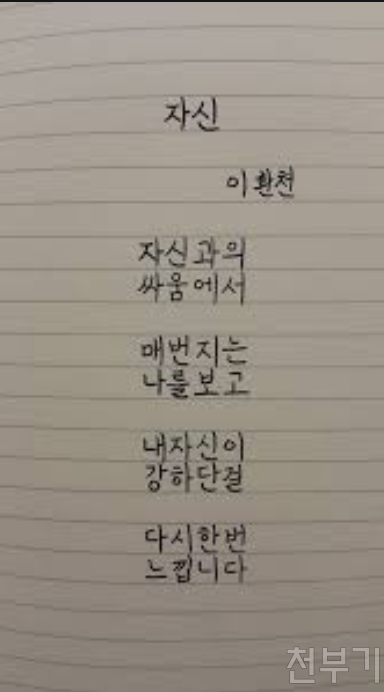 자신
이환천
자신과의
싸움에서
매번지는
나를보고
내자신이
강하단걸
다시한번
느낍니다
천부기